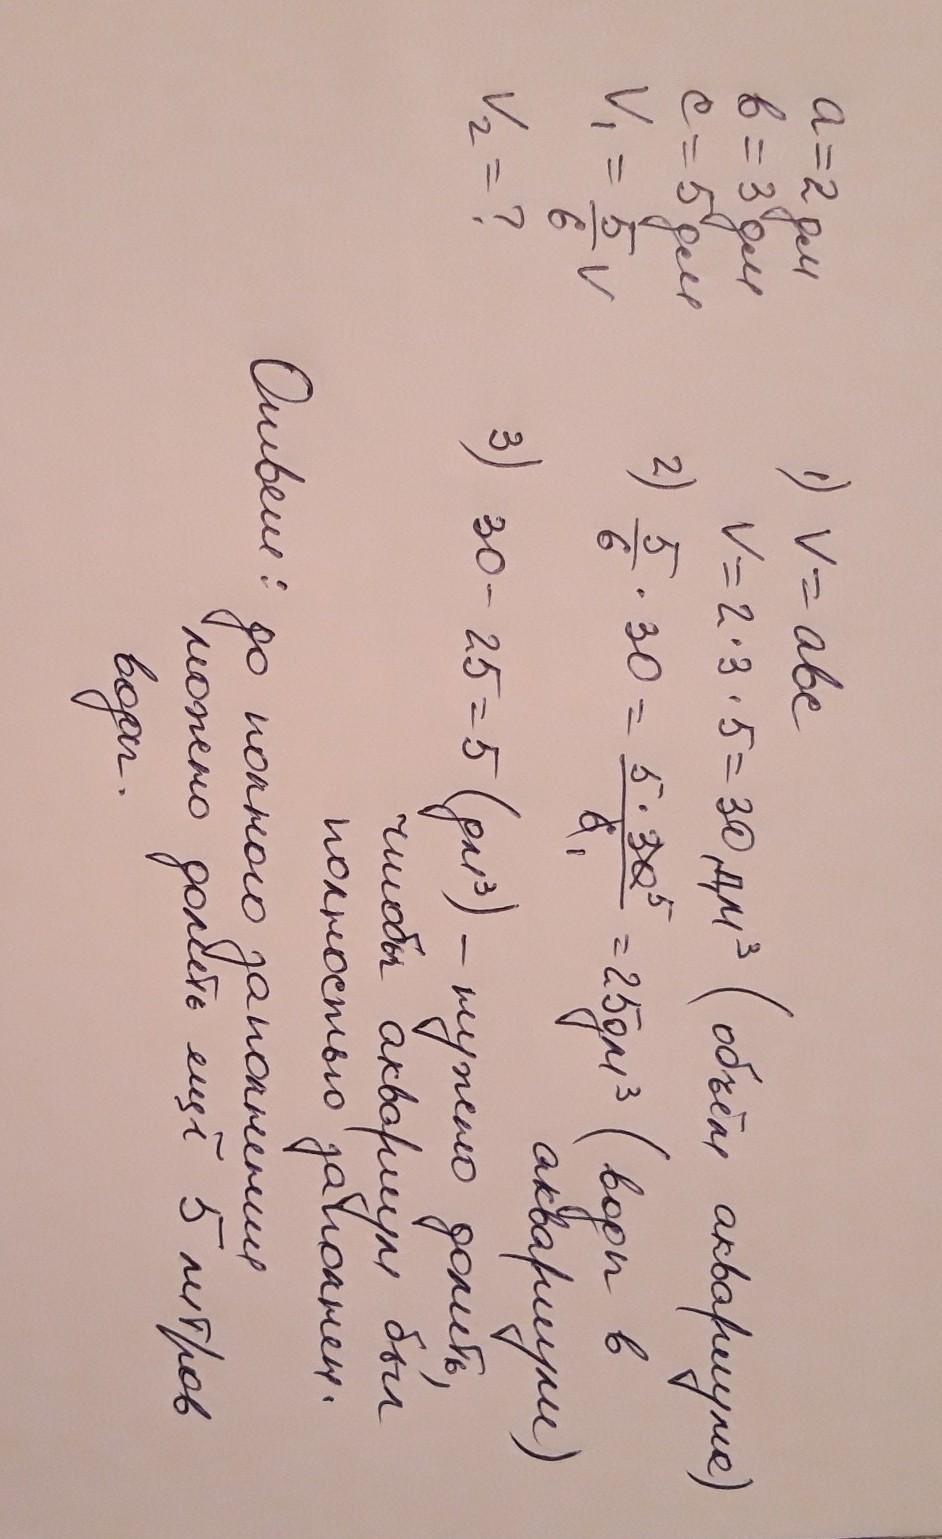 a = 2 дм
в = 3 дм
с = 5 дм
V₁ = 5/6 V
V₂ = ?
1) V = авс
V = 2 · 3 · 5 = 30 дм³ (объём аквариума)
2) 5/6 · 30 = 5 · 30⁵ / 6₁ = 25 дм³ (воды в
аквариуме)
3) 30 - 25 = 5 (дм³) – нужно долить,
чтобы аквариум был
полностью заполнен.
Ответ: до полного заполнения
можно долить ещё 5 литров
воды.